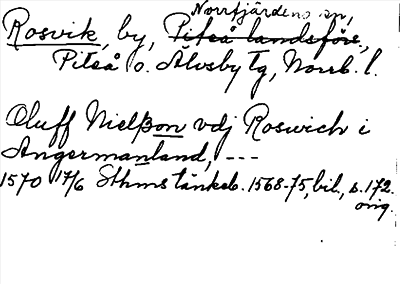 Norrfjärdens sn,
Rosvik, by, Piteå landsförs.,
Piteå o. Älvsby tg, Norrb. l.
Oluff Nielßon vdj Roswich i
Angermanland, ---
1570 17/6 Sthms tänkeb. 1568-75, bil., s. 172.
orig.